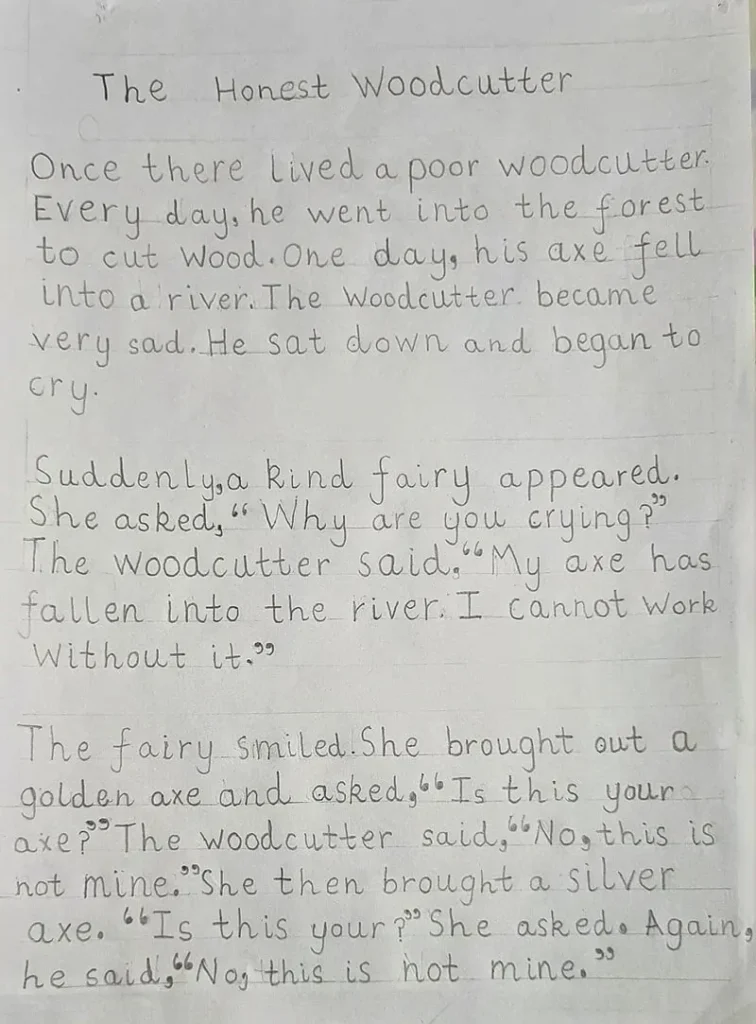 The Honest Woodcutter
Once there lived a poor woodcutter.
Every day, he went into the forest
to cut wood. One day, his axe fell
into a river. The woodcutter became
very sad. He sat down and began to
cry.
Suddenly, a kind fairy appeared.
She asked, “Why are you crying?”
The woodcutter said, “My axe has
fallen into the river. I cannot work
without it.”
The fairy smiled. She brought out a
golden axe and asked, “Is this your
axe?” The woodcutter said, “No, this is
not mine.” She then brought a silver
axe. “Is this your?” She asked. Again,
he said, “No, this is not mine.”